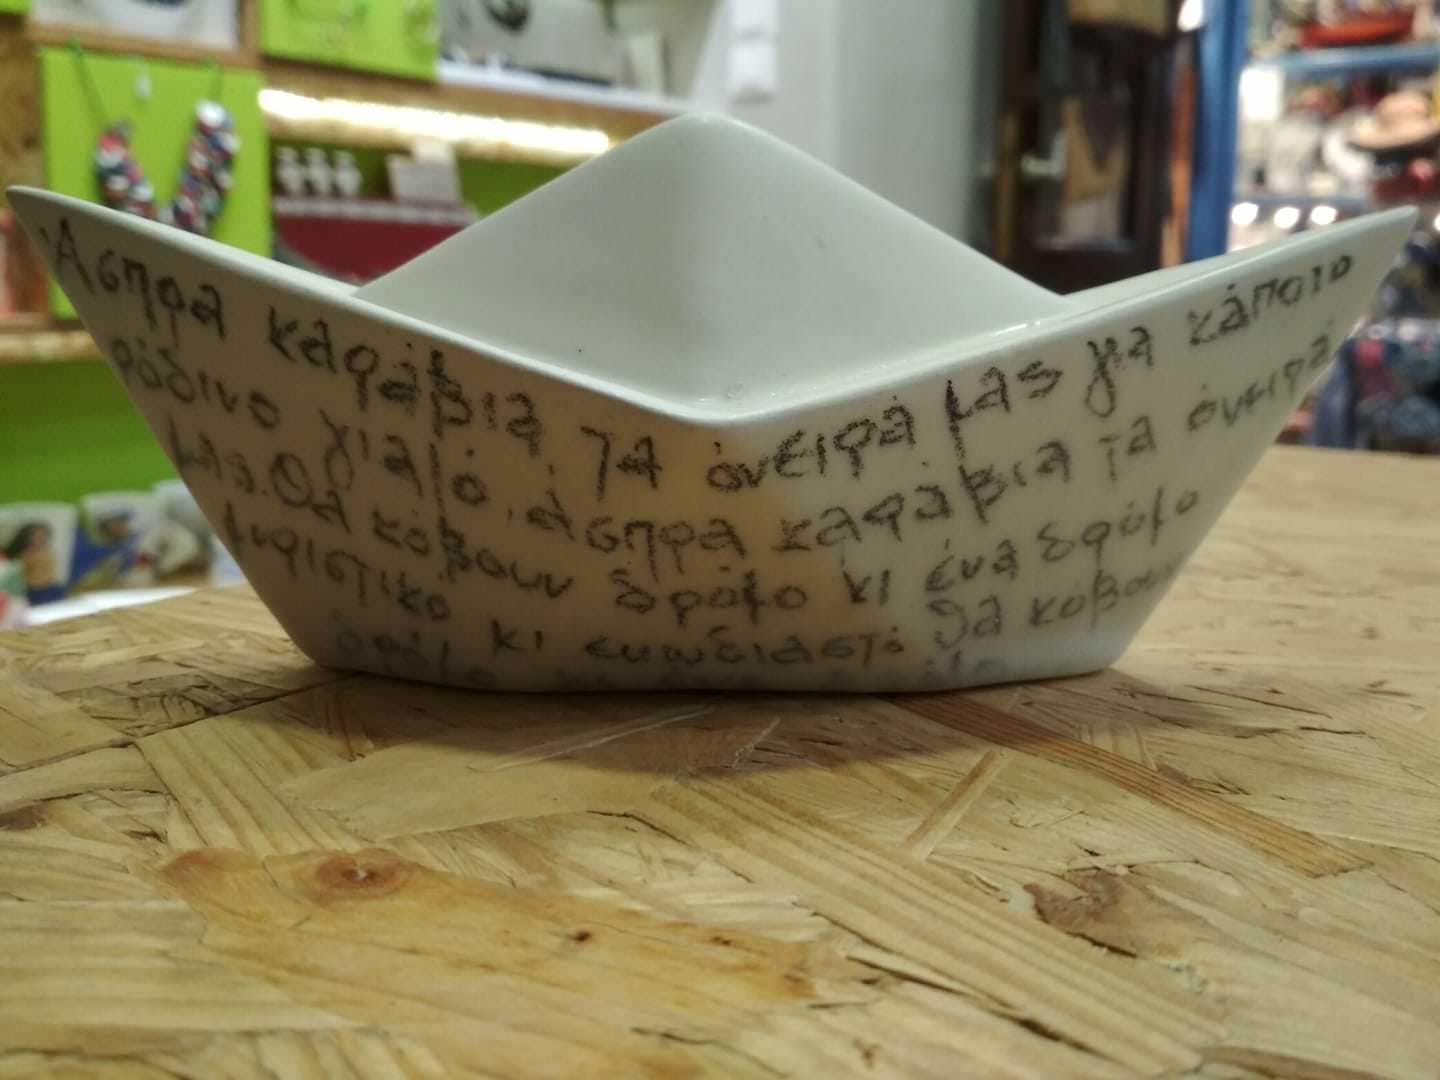 Άσπρα καράβια τα όνειρά μας για κάποιο
ρόδινο γιαλό, άσπρα καράβια τα όνειρά
μας. Θα κόβουν δρόμο κι ένα δρόμο
μυριστικό κι ευωδιαστό θα κόβουν
δρόμο